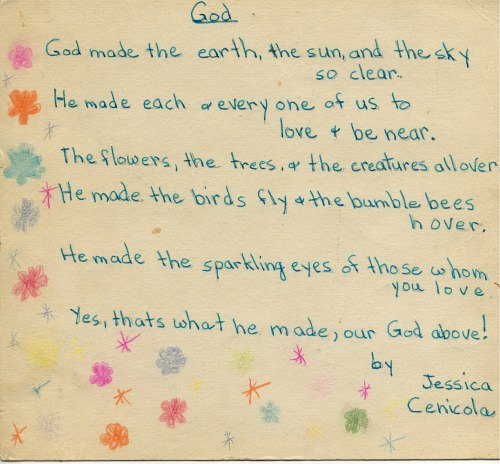 God
God made the earth, the sun, and the sky
so clear.
He made each & every one of us to
love & be near.
The flowers, the trees, & the creatures all over
He made the birds fly & the bumble bees
hover.
He made the sparkling eyes of those whom
you love
Yes, thats what he made, our God above!
by
Jessica
Cenicola